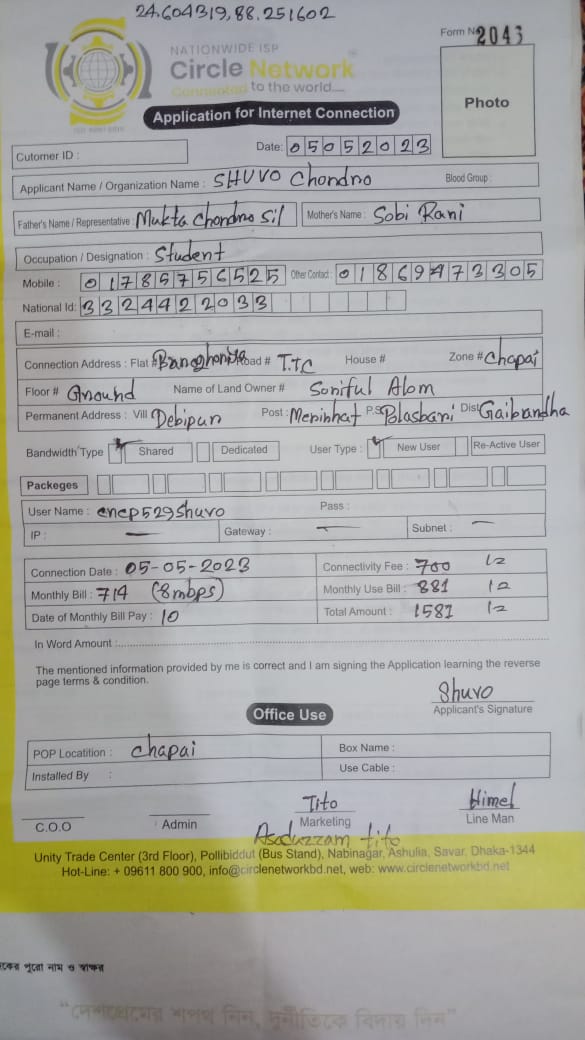 24.604319,88.251602
Form No 2043
NATIONWIDE ISP
Circle Network
Connected to the world....
Photo
Application for Internet Connection
Cutomer ID :
Date: 05052023
Applicant Name / Organization Name : SHUVO Chondro Blood Group :
Father's Name / Representative : Mukta Chondro Sil Mother's Name : Sobi Rani
Occupation / Designation : Student
Mobile : 01785756525 Other Contact : 01869473305
National Id: 3324422033
E-mail :
Connection Address : Flat # Road # T.T.C House # Zone # Chapai
Floor # Ground Name of Land Owner # Soriful Alom
Permanent Address : Vill Debipur Post : Merirhat P.S Polasbari Dist Gaibandha
Bandwidth Type Shared Dedicated User Type : New User Re-Active User
Packeges
User Name : cncp529shuvo Pass :
IP : — Gateway : — Subnet : —
Connection Date : 05-05-2023 Connectivity Fee : 700
Monthly Bill : 714 (8mbps) Monthly Use Bill : 881
Date of Monthly Bill Pay : 10 Total Amount : 1581
In Word Amount :
The mentioned information provided by me is correct and I am signing the Application learning the reverse
page terms & condition.
Shuvo
Applicant's Signature
Office Use
POP Locatition : Chapai Box Name :
Installed By : Use Cable :
Tito Himel
C.O.O Admin Marketing Line Man
Asaduzzam tito
Unity Trade Center (3rd Floor), Pollibiddut (Bus Stand), Nabinagar, Ashulia, Savar, Dhaka-1344
Hot-Line: + 09611 800 900, info@circlenetworkbd.net, web: www.circlenetworkbd.net
পুরো নাম ও স্বাক্ষর
“দেশপ্রেমের শপথ নিন, দুর্নীতিকে বিদায় দিন”